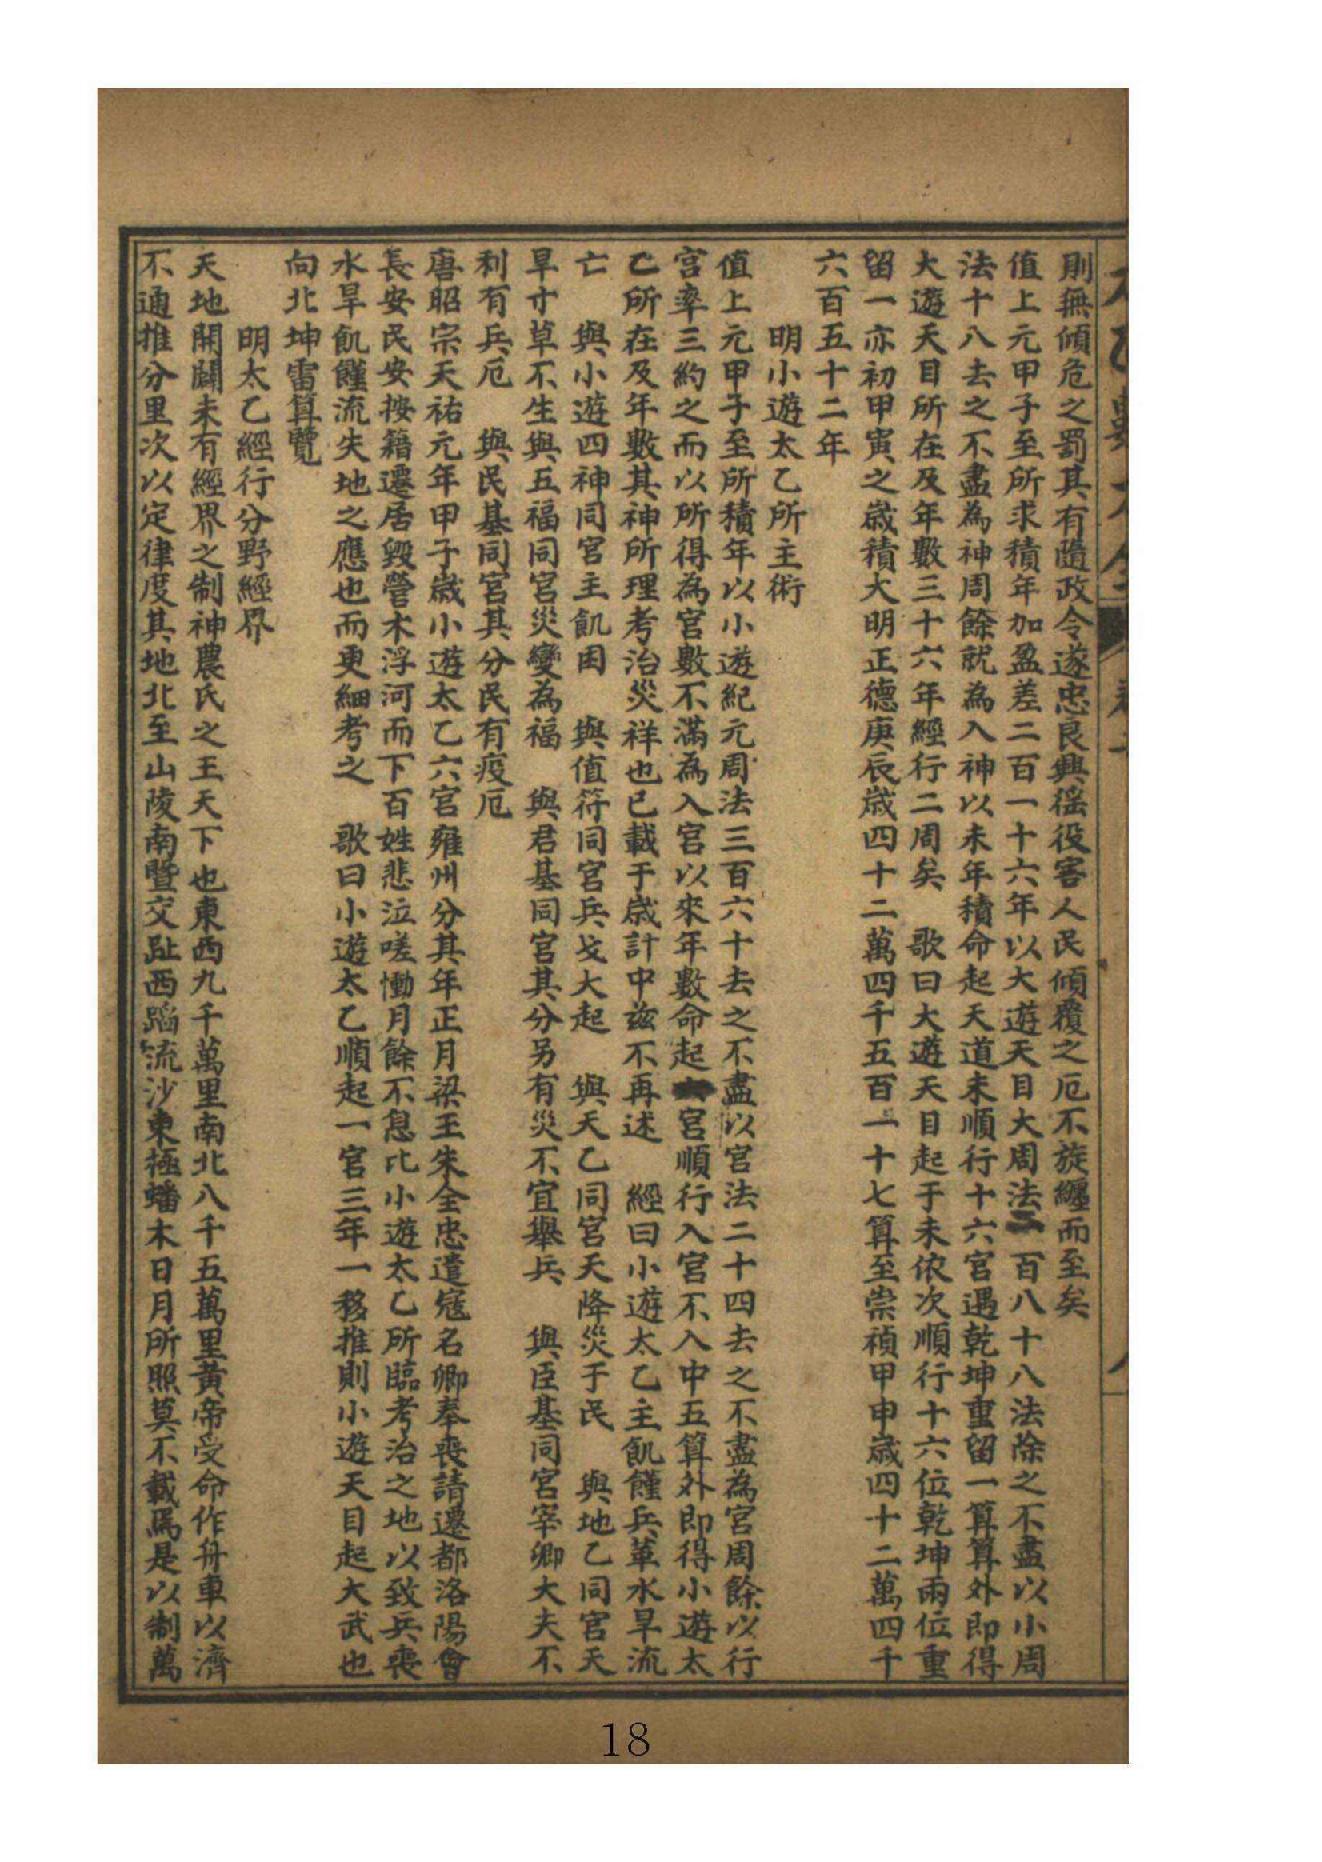 則無傾危之罰其有隨政令遂忠良興徭役害人民傾覆之厄不旋纏而至矣
值上元甲子至所求積年加盈差二百一十六年以大遊天目大周法二百八十八法除之不盡以小周
法十八去之不盡為神周餘就為入神以未年積命起天道未順行十六宮遇乾坤重留一算算外即得
大遊天目所在及年數三十六年經行二周矣　歌曰大遊天目起于未依次順行十六位乾坤兩位重
留一亦初甲寅之歲積大明正德庚辰歲四十二萬四千五百一十七算至崇禎甲申歲四十二萬四千
六百五十二年
明小遊太乙所主術
值上元甲子至所積年以小遊紀元周法三百六十去之不盡以宮法二十四去之不盡為宮周餘以行
宮率三約之而以所得為宮數不滿為入宮以來年數命起宮順行入宮不入中五算外即得小遊太
乙所在及年數其神所理考治災祥也已載于歲計中茲不再述　經曰小遊太乙主飢饉兵革水旱流
亡　與小遊四神同宮主飢困　與值符同宮兵戈大起　與天乙同宮天降災于民　與地乙同宮天
旱寸草不生與五福同宮災變為福　與君基同宮其分另有災不宜舉兵　與臣基同宮宰卿大夫不
利有兵厄　與民基同宮其分民有疫厄
唐昭宗天祐元年甲子歲小遊太乙六宮雍州分其年正月梁王朱全忠遣寇名卿奉表請遷都洛陽會
長安民安按籍遷居毀營木浮河而下百姓悲泣嗟慟月餘不息比小遊太乙所臨考治之地以致兵喪
水旱飢饉流失地之應也而更細考之　歌曰小遊太乙順起一宮三年一移推則小遊天目起大武也
向北坤雷算覽
明太乙經行分野經界
天地開闢未有經界之制神農氏之王天下也東西九千萬里南北八千五萬里黃帝受命作舟車以濟
不通推分里次以定律度其地北至山陵南暨交趾西蹈流沙東極蟠木日月所照莫不載焉是以制萬
18